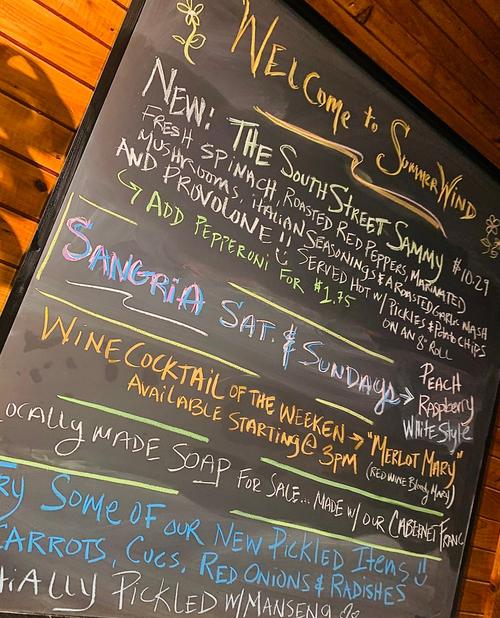 WELCOME to SUMMERWIND
NEW! THE SOUTH STREET SAMMY $10.29
FRESH SPINACH, ROASTED RED PEPPERS, MARINATED
MUSHROOMS, ITALIAN SEASONINGS & A ROASTED GARLIC MASH
AND PROVOLONE!! SERVED HOT W/ PICKLES & POTATO CHIPS
ON AN 8" ROLL
ADD PEPPERONI FOR $1.75
SANGRIA SAT. & SUNDAYS → PEACH
RASPBERRY
WHITE STYLE
WINE COCKTAIL OF THE WEEKEN → "MERLOT MARY"
AVAILABLE STARTING @ 3PM (RED WINE BLOODY MARY)
OCALLY MADE SOAP FOR SALE... MADE W/ OUR CABERNET FRANC
RY SOME OF OUR NEW PICKLED ITEMS!
CARROTS, CUCS, RED ONIONS & RADISHES
TIALLY PICKLED W/ MANSENG